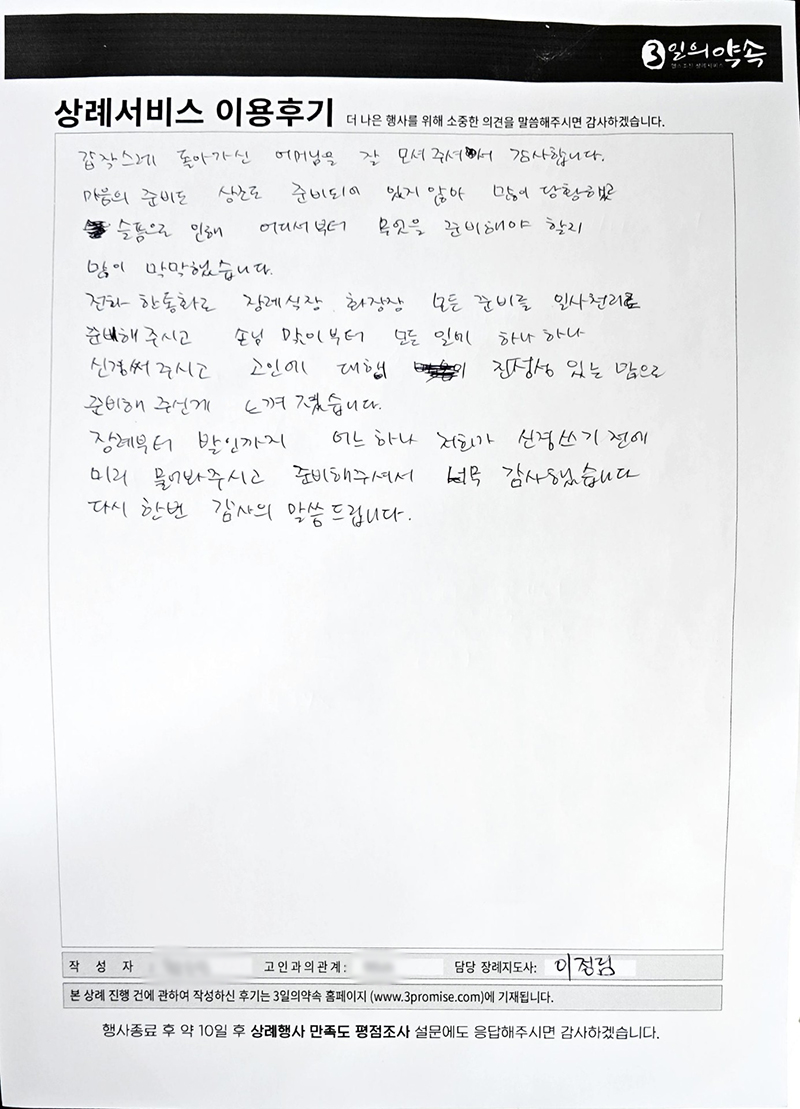 3일의약속
상례서비스 이용후기 더 나은 행사를 위해 소중한 의견을 말씀해주시면 감사하겠습니다.
갑작스레 돌아가신 어머님을 잘 모셔주셔서 감사합니다.
마음의 준비도 상조도 준비되어 있지 않아 많이 당황했고
슬픔으로 인해 어디서부터 무엇을 준비해야 할지
많이 막막했습니다.
전화 한통화로 장례식장, 화장장 모든 준비를 일사천리로
준비해 주시고 손님 맞이부터 모든 일에 하나 하나
신경써 주시고 고인에 대해 진정성 있는 맘으로
준비해 주신게 느껴 졌습니다.
장례부터 발인까지 어느 하나 저희가 신경쓰기 전에
미리 물어봐주시고 준비해주셔서 너무 감사했습니다
다시 한번 감사의 말씀 드립니다.
작 성 자 고인과의관계: 담당 장례지도사: 이정림
본 상례 진행 건에 관하여 작성하신 후기는 3일의약속 홈페이지 (www.3promise.com)에 기재됩니다.
행사종료 후 약 10일 후 상례행사 만족도 평점조사 설문에도 응답해주시면 감사하겠습니다.